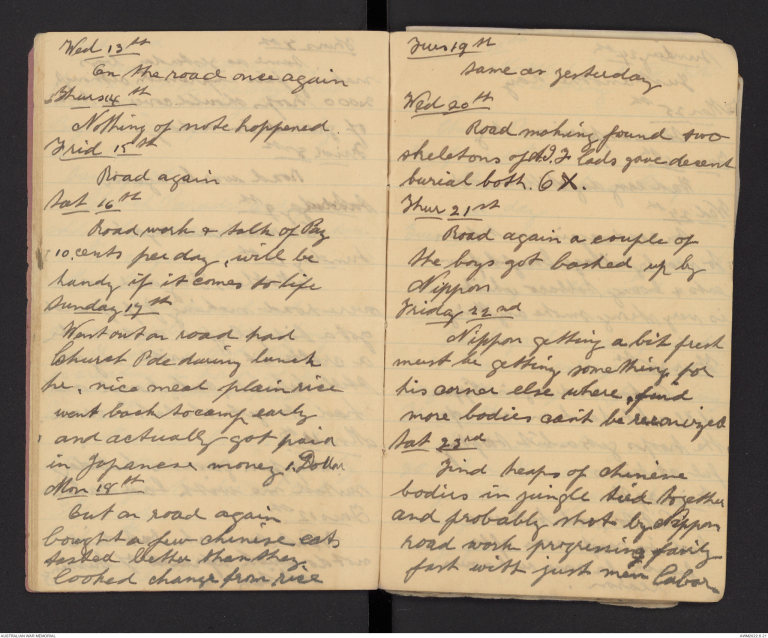 Wed 13th
On the road once again
Thurs 14th
Nothing of note happened.
Frid 15th
Road again
Sat 16th
Road work & talk of Pay
10 cents per day, will be
handy if it comes to life
Sunday 17th
Went out on road had
Church Pde during lunch
hr, nice meal plain rice
went back to camp early
and actually got paid
in Japanese money, 1 Dollar
Mon 18th
Out on road again
bought a few chinese eats
tasted better than they
looked change from rice
Tues 19th
same as yesterday
Wed 20th
Road making found two
skeletons of A.I.F lads gave decent
burial both. 6 X.
Thur 21st
Road again a couple of
the boys got bashed up by
Nippon
Friday 22nd
Nippon getting a bit fresh
must be getting something for
his corner else where, find
more bodies can't be reconized
Sat 23rd
Find heaps of chinese
bodies in jungle tied together
and probably shot by Nippon
road work progressing fairly
fast with just men labor
AUSTRALIAN WAR MEMORIAL